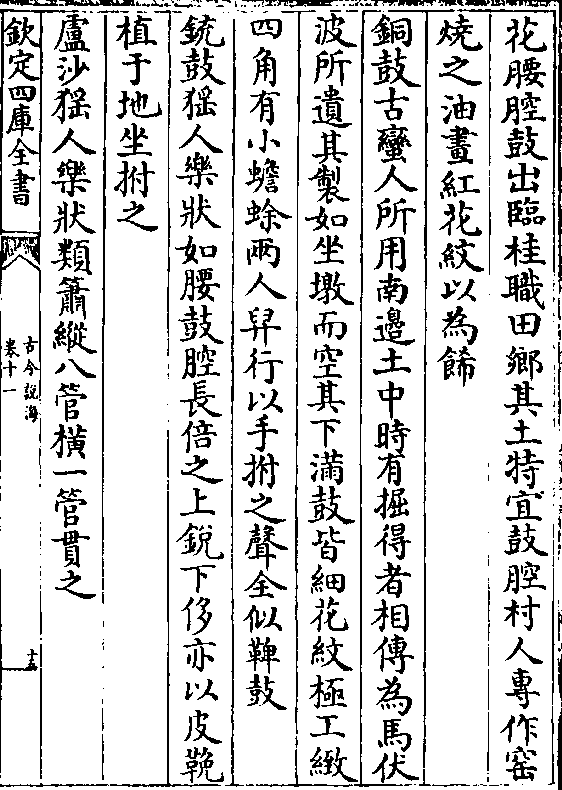 花腰腔鼓出臨桂職田鄉其土特宜鼓腔村人專作窑
燒之油畫紅花紋以為餙
銅鼓古蠻人所用南邊土中時有掘得者相傳為馬伏
波所遺其製如坐墩而空其下滿鼓皆細花紋極工緻
四角有小蟾蜍兩人舁行以手拊之聲全似鞞鼓
銃鼓猺人樂狀如腰鼓腔長倍之上銳下侈亦以皮鞔
植于地坐拊之
盧沙猺人樂狀類簫縱八管橫一管貫之
欽定四庫全書
古今説海
卷十一
十五